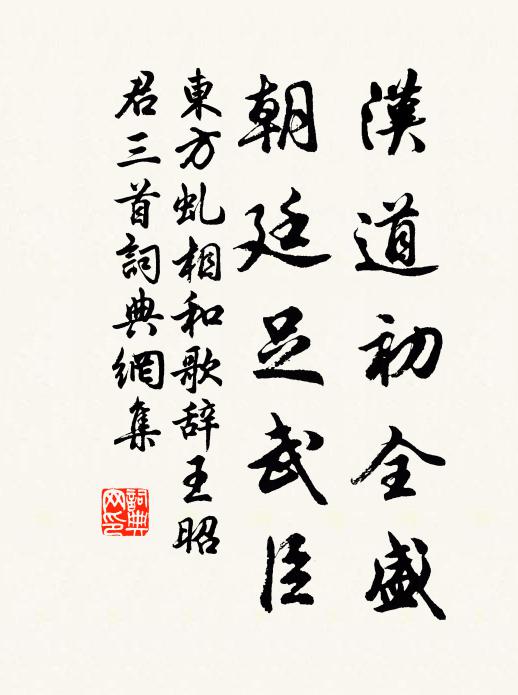 漢道初全盛
朝廷足武臣
東方虬相和歌辞王昭
君三首詞典網集
詞典网印